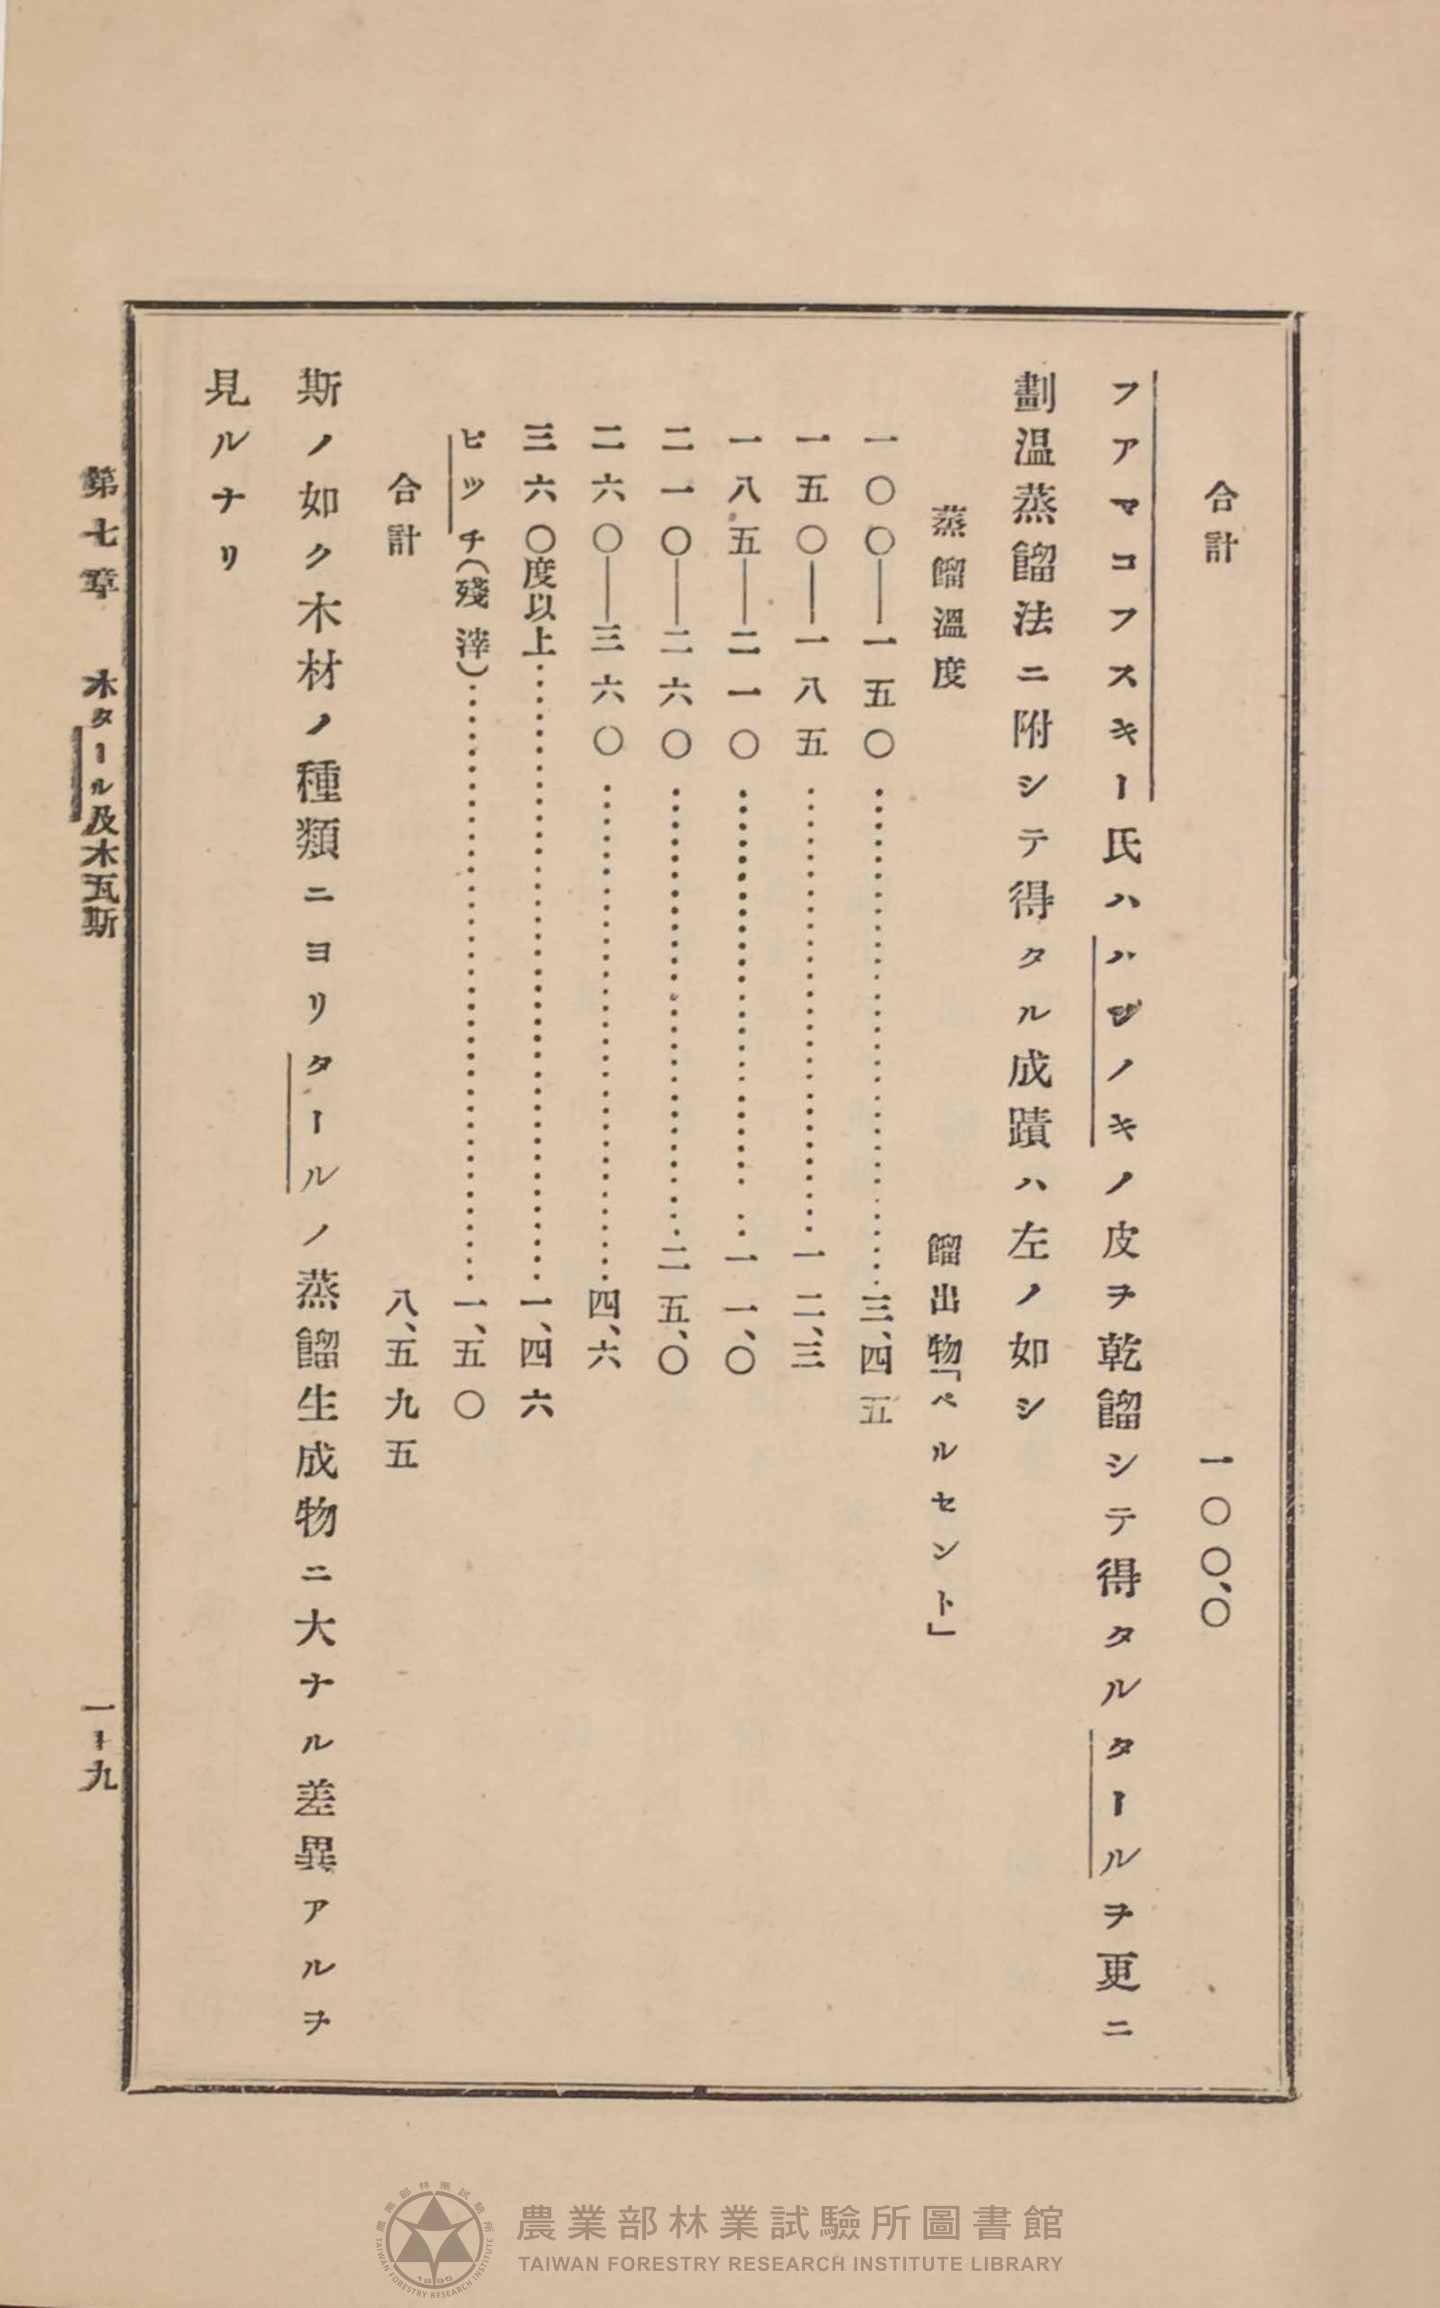 合計　一〇〇、〇
フアマコフスキー氏ハハジノキノ皮ヲ乾餾シテ得タルタールヲ更ニ
劃温蒸餾法ニ附シテ得タル成蹟ハ左ノ如シ
蒸餾溫度　餾出物「ペルセント」
一〇〇――一五〇………三、四五
一五〇――一八五………一二、三
一八五――二一〇………一一、〇
二一〇――二六〇………二五、〇
二六〇――三六〇………四、六
三六〇度以上………一、四六
ピッチ(殘滓)………一、五〇
合計　八、五九五
斯ノ如ク木材ノ種類ニヨリタールノ蒸餾生成物ニ大ナル差異アルヲ
見ルナリ
第七章　木タール及木瓦斯　一一九
農業部林業試驗所圖書館
TAIWAN FORESTRY RESEARCH INSTITUTE LIBRARY
農業部林業試驗所
TAIWAN FORESTRY RESEARCH INSTITUTE
1896